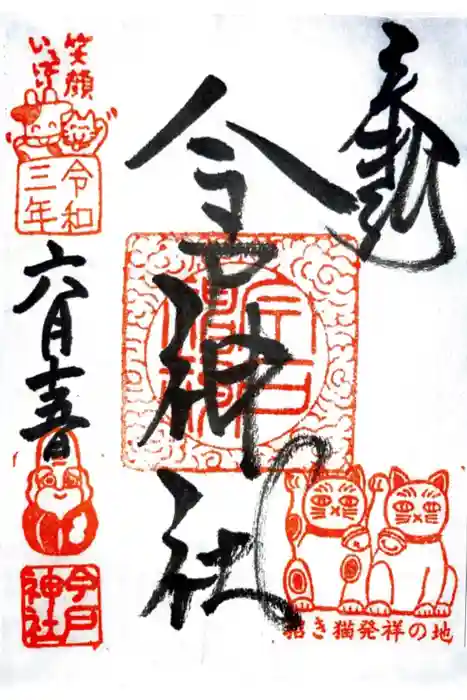 奉拝
今戸神社
笑顔
いっぱい
令和
三年
六月十五日
今戸
神社
招き猫発祥の地